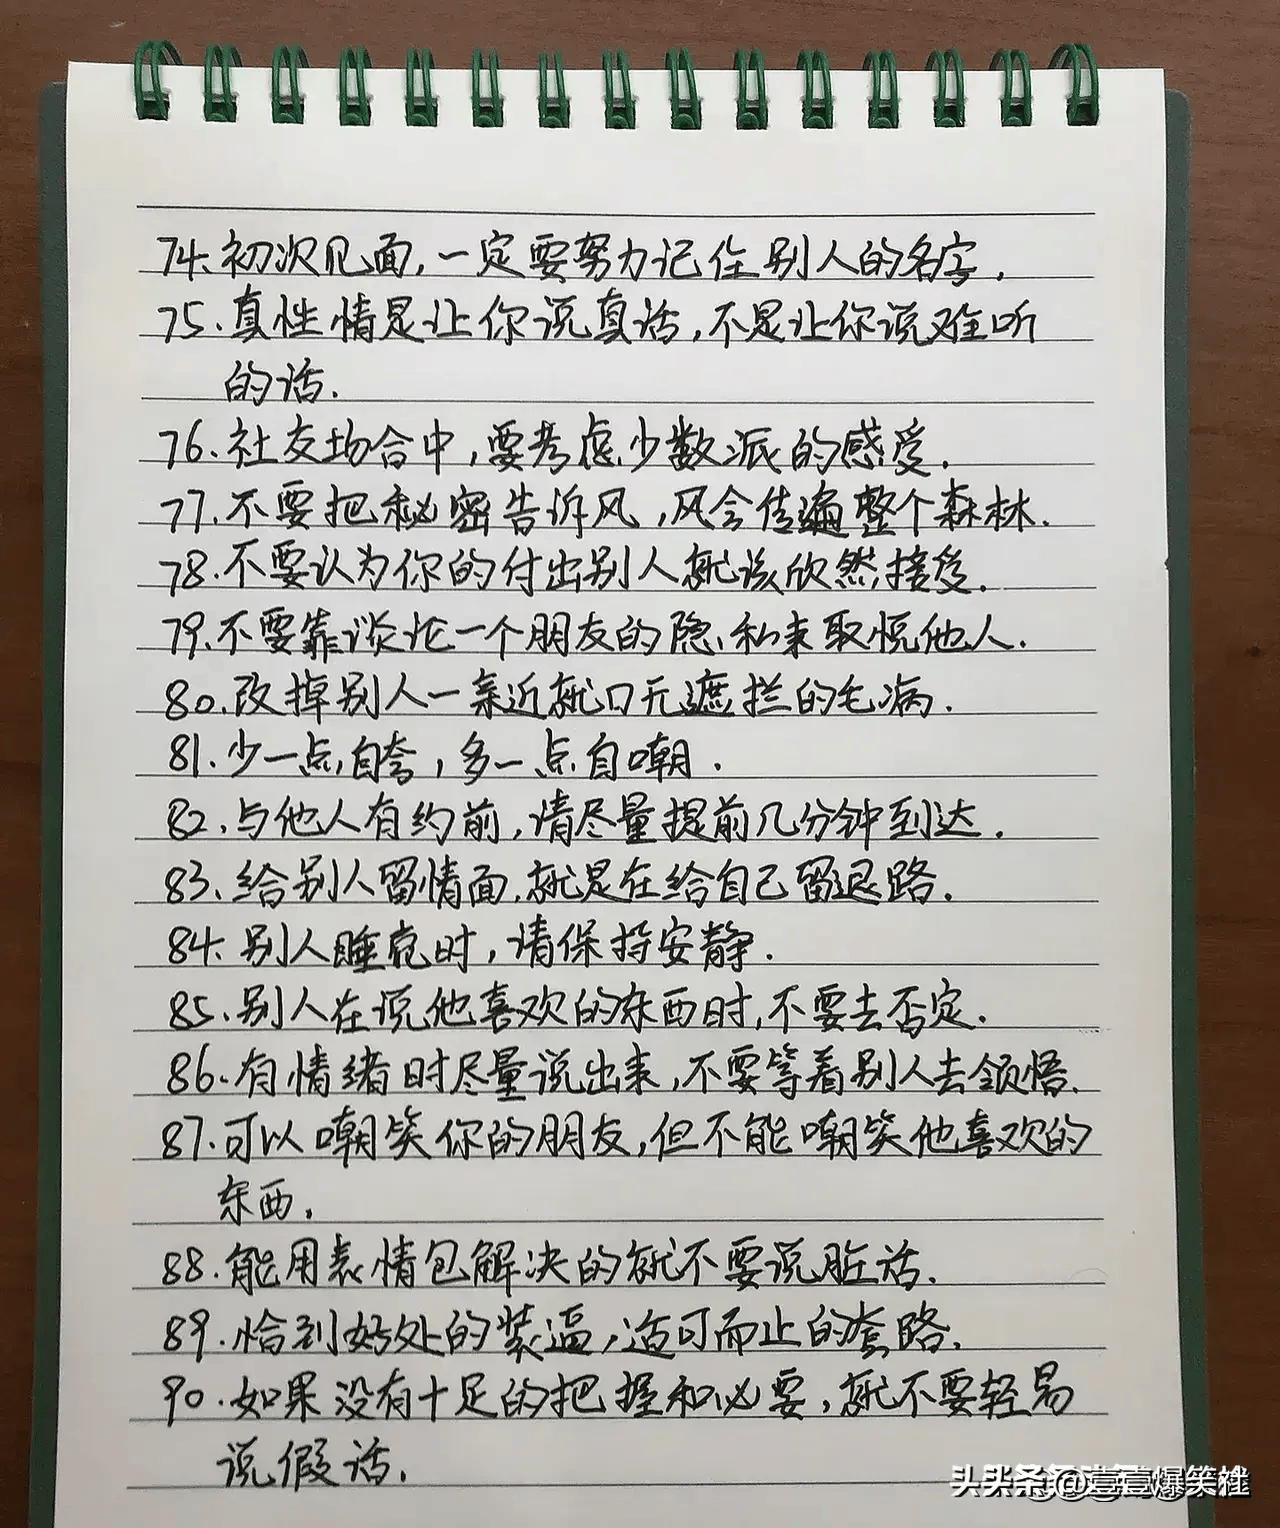 74.初次见面,一定要努力记住别人的名字.
75.真性情是让你说真话,不是让你说难听
的话.
76.社交场合中,要考虑少数派的感受.
77.不要把秘密告诉风,风会传遍整个森林.
78.不要认为你的付出别人就该欣然接受.
79.不要靠谈论一个朋友的隐私来取悦他人.
80.改掉别人一亲近就口无遮拦的毛病.
81.少一点自夸,多一点自嘲.
82.与他人有约前,请尽量提前几分钟到达.
83.给别人留情面,就是在给自己留退路.
84.别人睡觉时,请保持安静.
85.别人在说他喜欢的东西时,不要去否定.
86.有情绪时尽量说出来,不要等着别人去领悟.
87.可以嘲笑你的朋友,但不能嘲笑他喜欢的
东西.
88.能用表情包解决的就不要说脏话.
89.恰到好处的装逼,适可而止的套路.
90.如果没有十足的把握和必要,就不要轻易
说假话.
头条@壹壹爆笑社